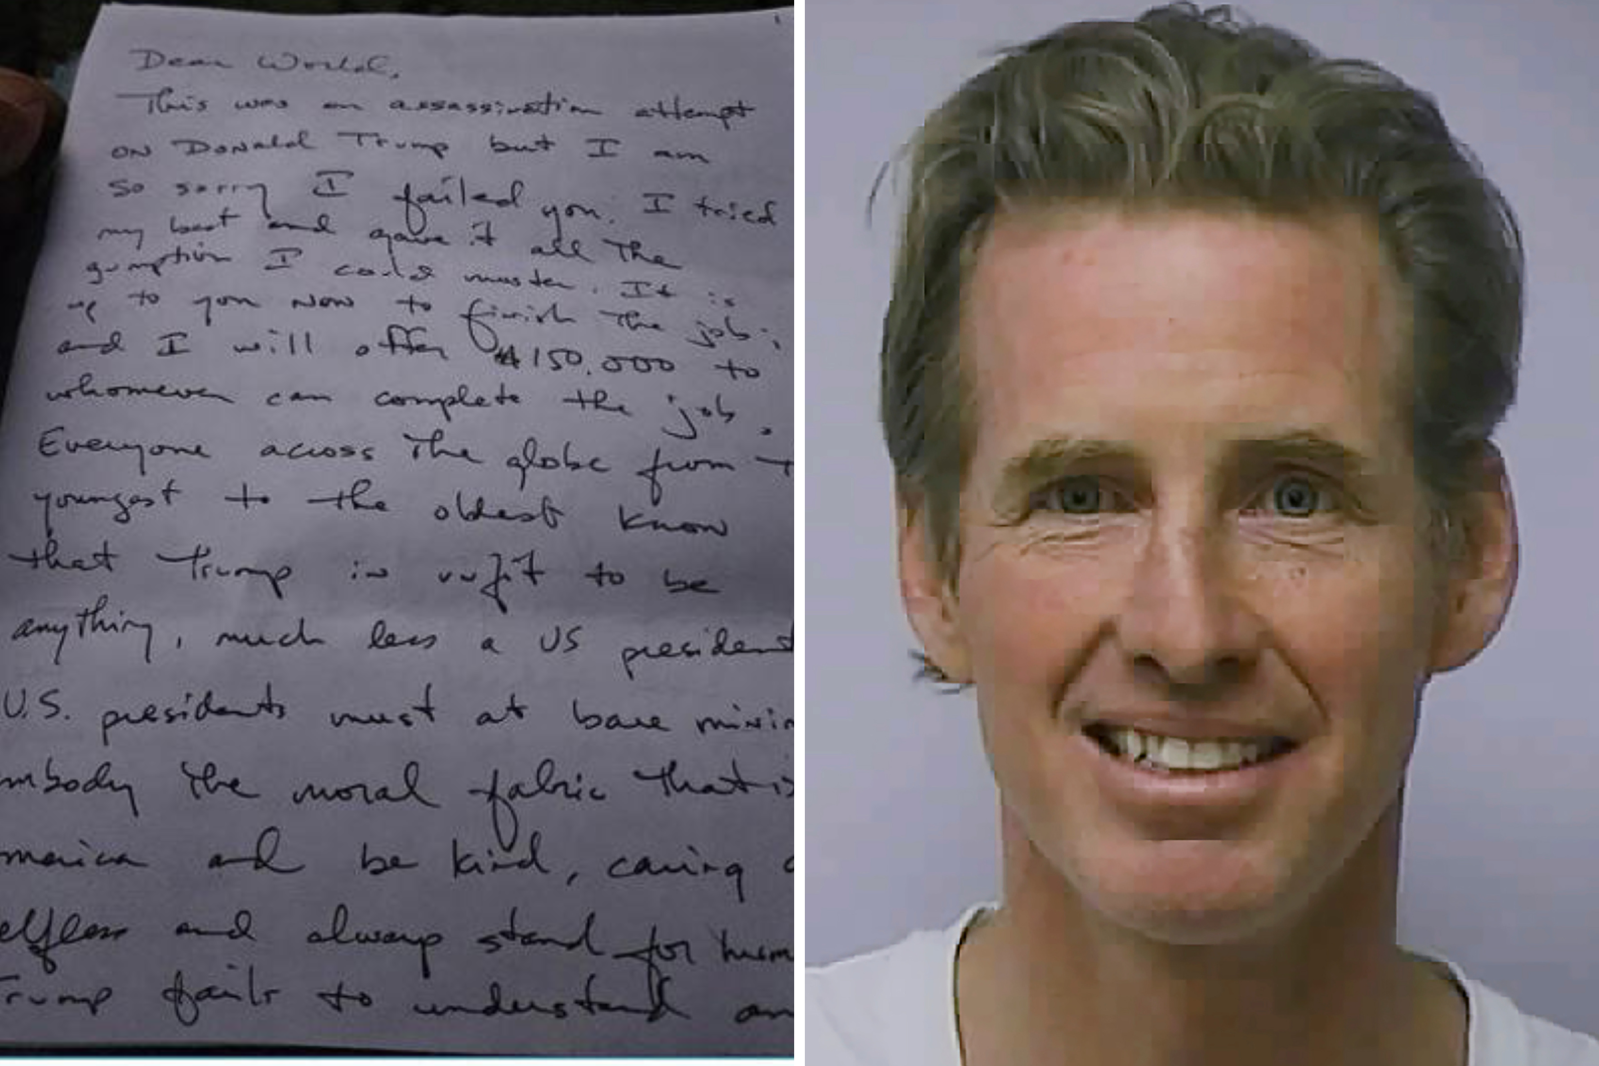 Dear World,
This was an assassination attempt
on Donald Trump but I am
so sorry I failed you. I tried
my best and gave it all the
gumption I could muster. It is
up to you now to finish the job;
and I will offer $150,000 to
whomever can complete the job.
Everyone across the globe from
youngest to the oldest know
that Trump is unfit to be
anything, much less a US president
U.S. presidents must at bare minim
mbody the moral fabric that is
merica and be kind, caring
elfless and always stand for hum
Trump fails to understand an